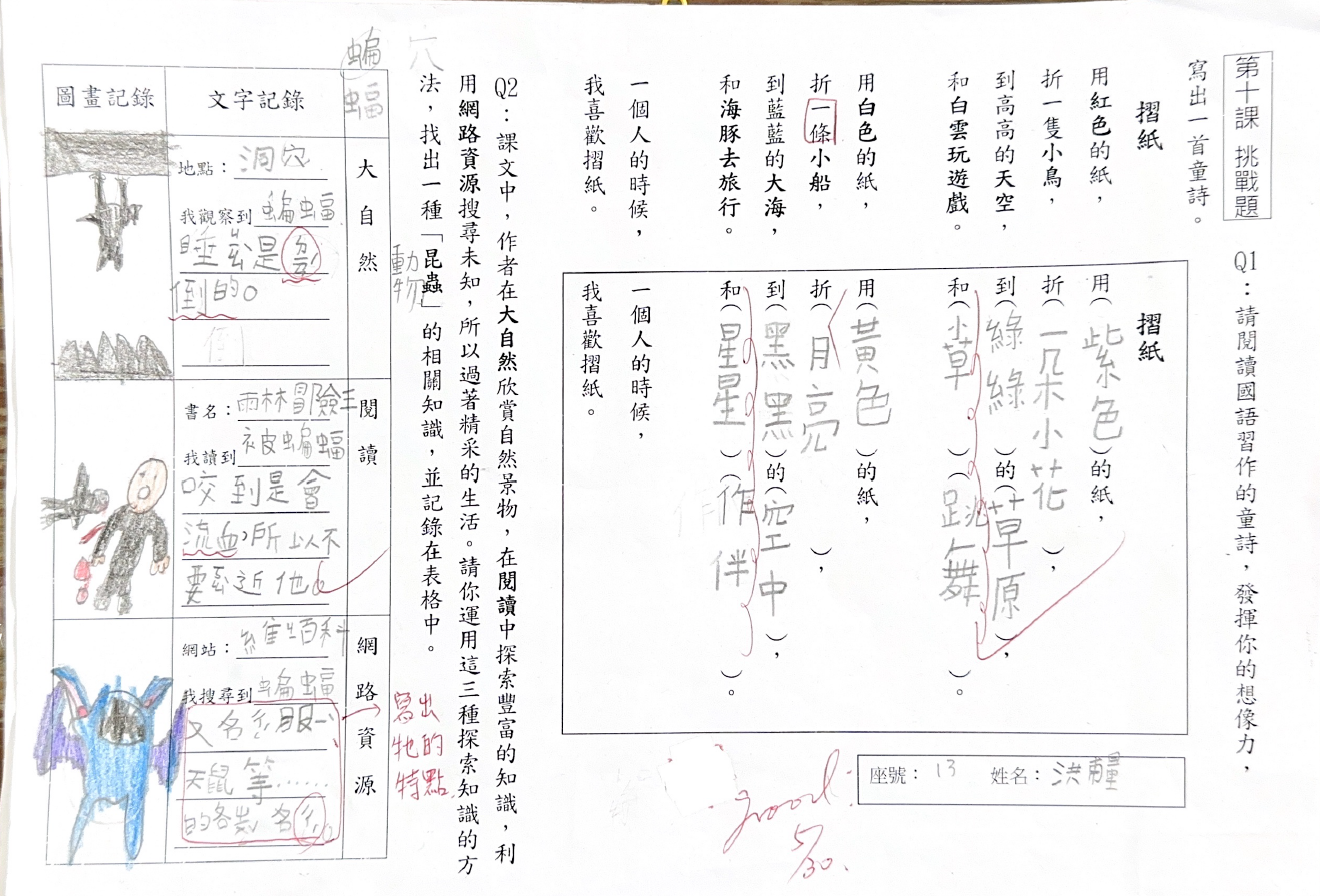 第十課 挑戰題
Q1：請閱讀國語習作的童詩，發揮你的想像力，
寫出一首童詩。
摺紙
用紅色的紙，
折一隻小鳥，
到高高的天空，
和白雲玩遊戲。
用白色的紙，
折一條小船，
到藍藍的大海，
和海豚去旅行。
一個人的時候，
我喜歡摺紙。
摺紙
用（紫色）的紙，
折（一朵小花），
到（綠綠）的（草原），
和（小草）（跳舞）。
用（黃色）的紙，
折（月亮），
到（黑黑）的（空中），
和（星星）（作伴）。
一個人的時候，
我喜歡摺紙。
座號：13 姓名：洪
good!
5/30.
Q2：課文中，作者在大自然欣賞自然景物，在閱讀中探索豐富的知識，利
用網路資源搜尋未知，所以過著精采的生活。請你運用這三種探索知識的方
法，找出一種「昆蟲」的相關知識，並記錄在表格中。
動物
穴
蝙蝠
大自然
文字記錄
圖畫記錄
地點：洞穴
我觀察到蝙蝠
睡ㄓㄠ是
倒的。
倒
閱讀
書名：雨林冒險王
我讀到被蝙蝠
咬到是會
流血，所以不
要ㄎㄠ近他。
網路資源
網站：維ㄐㄧ百科
我搜尋到蝙蝠
又名
天鼠等……
的各ㄓㄨㄥ名
寫出
牠的
特點